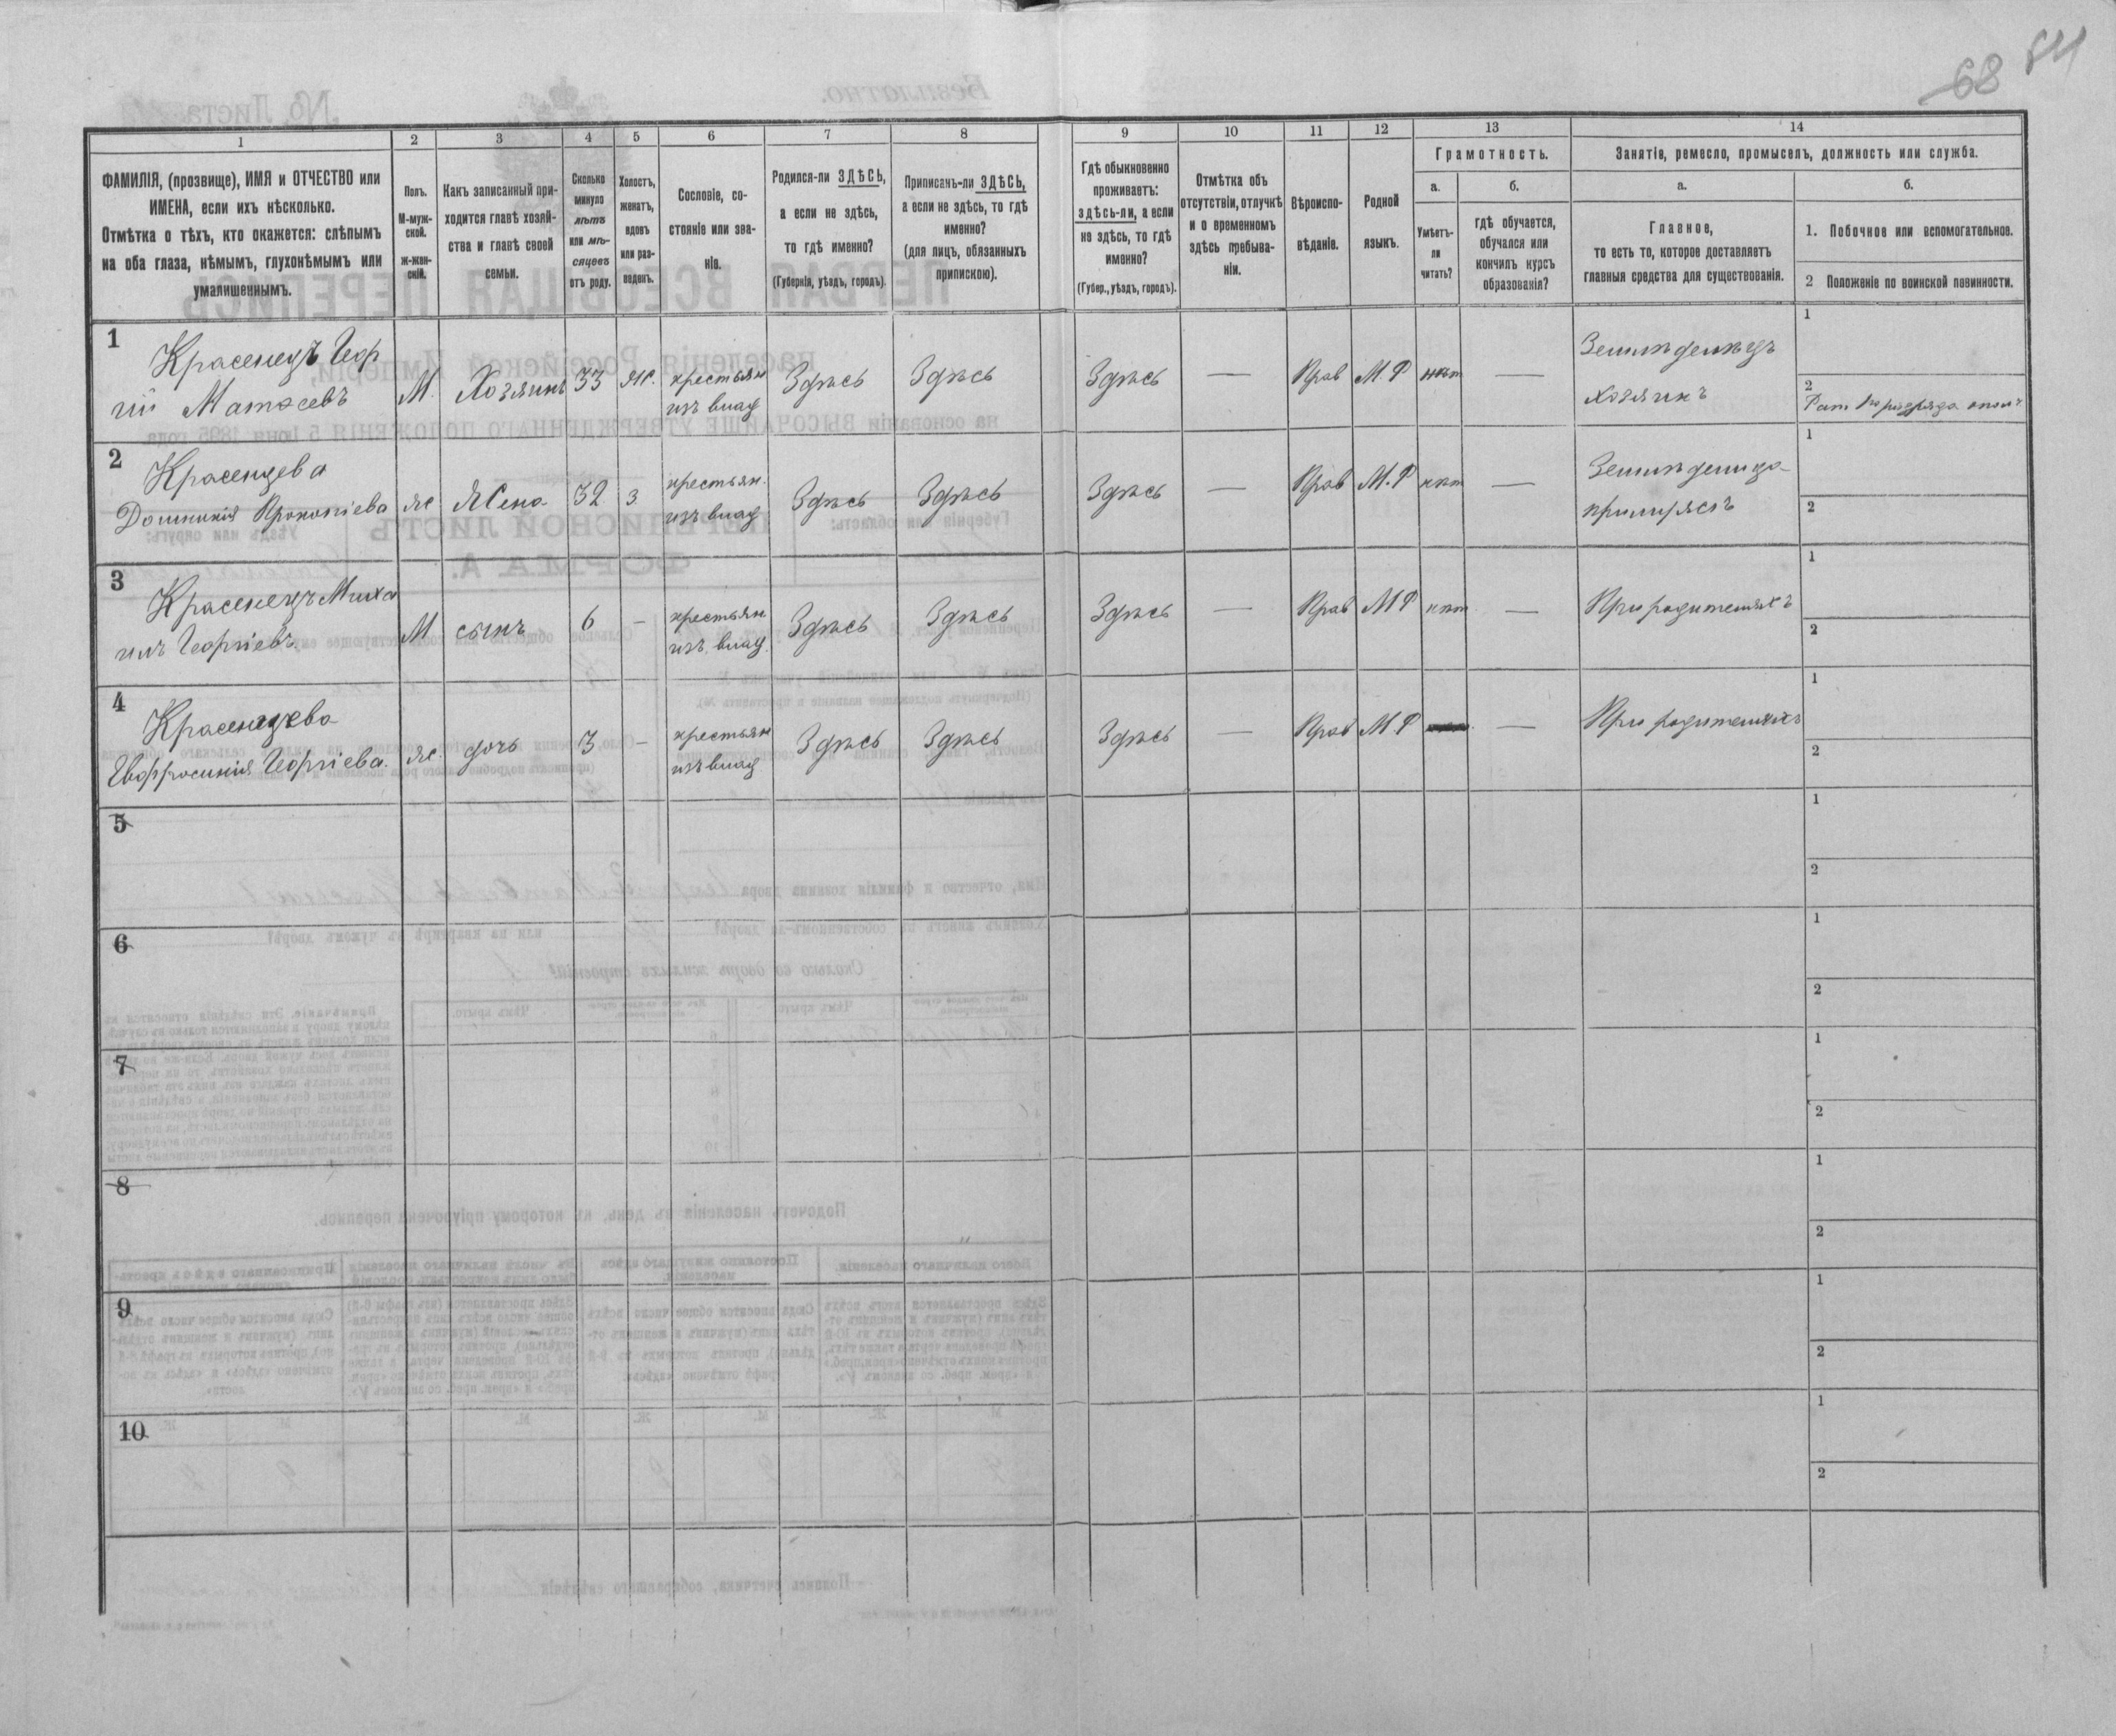 68 84
1 2 3 4 5 6 7 8 9 10 11 12 13 14
ФАМИЛІЯ, (прозвище), ИМЯ и ОТЧЕСТВО или
ИМЕНА, если ихъ нѣсколько.
Отмѣтка о тѣхъ, кто окажется: слѣпымъ
на оба глаза, нѣмымъ, глухонѣмымъ или
умалишеннымъ.
Полъ.
М-муж-
ской.
ж-жен-
скій.
Какъ записанный при-
ходится главѣ хозяй-
ства и главѣ своей
семьи.
Сколько
минуло
лѣтъ
или мѣ-
сяцевъ
отъ роду.
Холостъ,
женатъ,
вдовъ
или раз-
веденъ.
Сословіе, со-
стояніе или зва-
ніе.
Родился-ли ЗДѢСЬ,
а если не здѣсь,
то гдѣ именно?
(Губернія, уѣздъ, городъ).
Приписанъ-ли ЗДѢСЬ,
а если не здѣсь, то гдѣ
именно?
(для лицъ, обязанныхъ
припискою).
Гдѣ обыкновенно
проживаетъ:
здѣсь-ли, а если
не здѣсь, то гдѣ
именно?
(Губер., уѣздъ, городъ).
Отмѣтка объ
отсутствіи, отлучкѣ
и о временномъ
здѣсь пребыва-
ніи.
Вѣроиспо-
вѣданіе.
Родной
языкъ.
Грамотность.
а. б.
Умѣетъ-
ли
читать?
гдѣ обучается,
обучался или
кончилъ курсъ
образованія?
Занятіе, ремесло, промыселъ, должность или служба.
а. б.
Главное,
то есть то, которое доставляетъ
главныя средства для существованія.
1. Побочное или вспомогательное.
2 Положеніе по воинской повинности.
1 Красенецъ Геор
гій Матѳеевъ М. Хозяинъ 33 Ж. крестьян
изъ влад Здѣсь Здѣсь Здѣсь — Прав М.Р нѣт — Земледѣлецъ
хозяинъ 1
2 Рат. разряда опол
2 Красенцева
Домникія Прокопіева Ж Жена 32 З крестьян.
изъ влад Здѣсь Здѣсь Здѣсь — Прав М.Р нѣт — 1
2
3 Красенецъ Миха
илъ Георгіевъ М сынъ 6 — крестьян
изъ влад. Здѣсь Здѣсь Здѣсь — Прав М Р нѣт — При родителяхъ 1
2
4 Красенцева
Евфросинія Георгіева. Ж. дочь 3 — крестьян
изъ влад Здѣсь Здѣсь Здѣсь — Прав М Р — При родителяхъ 1
2
5 1
2
6 1
2
7 1
2
8 1
2
9 1
2
10 1
2